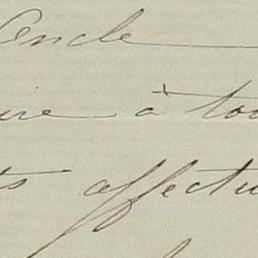 Cencle
ire à tou
ts affectu